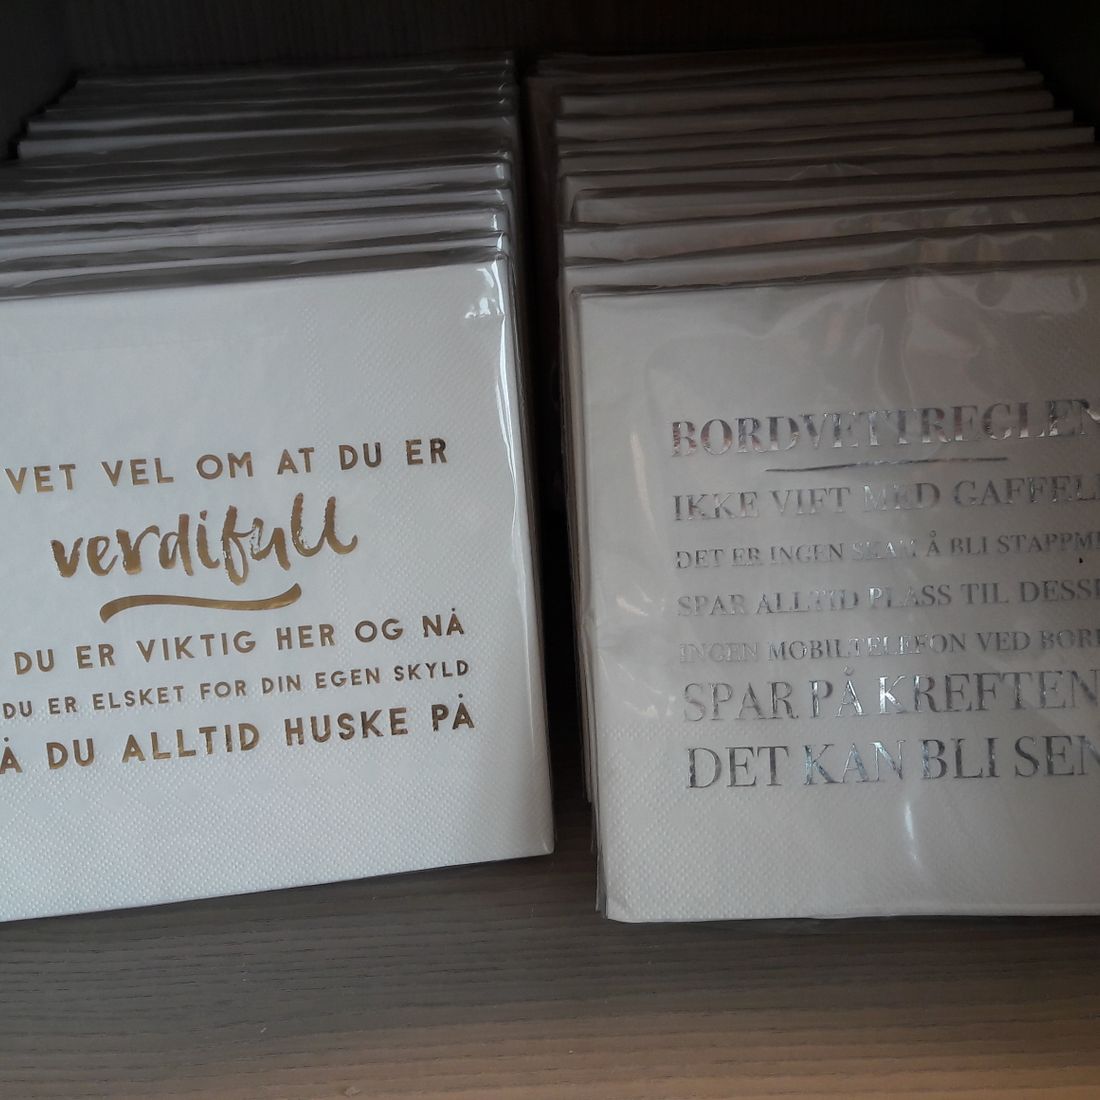 VET VEL OM AT DU ER
verdifull
DU ER VIKTIG HER OG NÅ
DU ER ELSKET FOR DIN EGEN SKYLD
Å DU ALLTID HUSKE PÅ
BORDVETTREGLEN
IKKE VIFT MED GAFFEL
DET ER INGEN SKAM Å BLI STAPPM
SPAR ALLTID PLASS TIL DESSE
INGEN MOBILTELEFON VED BOR
SPAR PÅ KREFTEN
DET KAN BLI SEN